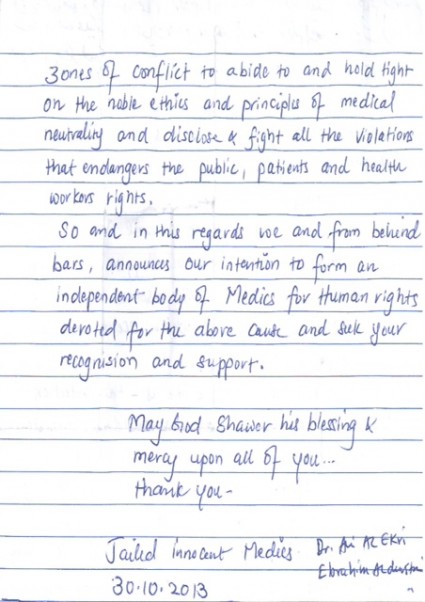 Zones of conflict to abide to and hold tight
on the noble ethics and principles of medical
neutrality and disclose & fight all the violations
that endangers the public, patients and health
workers rights.
So and in this regards we and from behind
bars, announces our intention to form an
independent body of Medics for Human rights
devoted for the above cause and seek your
recognision and support.
May God Shawor his blessing &
mercy upon all of you...
thank you-
Jailed innocent Medics. Dr. Ali Al EKri
30.10.2013 Ebrahim